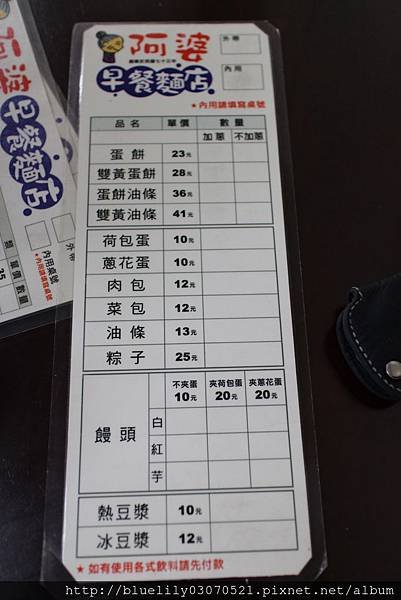 阿婆
創業於民國七十三年
早餐麵店
外帶
內用
★內用請填寫桌號
品名 單價 數量
加蔥 不加蔥
蛋餅 23元
雙黃蛋餅 28元
蛋餅油條 36元
雙黃油條 41元
荷包蛋 10元
蔥花蛋 10元
肉包 12元
菜包 12元
油條 13元
粽子 25元
不夾蛋 夾荷包蛋 夾蔥花蛋
10元 20元 20元
饅頭
白
紅
芋
熱豆漿 10元
冰豆漿 12元
★如有使用各式飲料請先付款
阿婆
早餐麵店
外帶
內用桌號
★內用請填寫桌號
單價 數量
35
http://bluelily03070521.pixnet.net/album